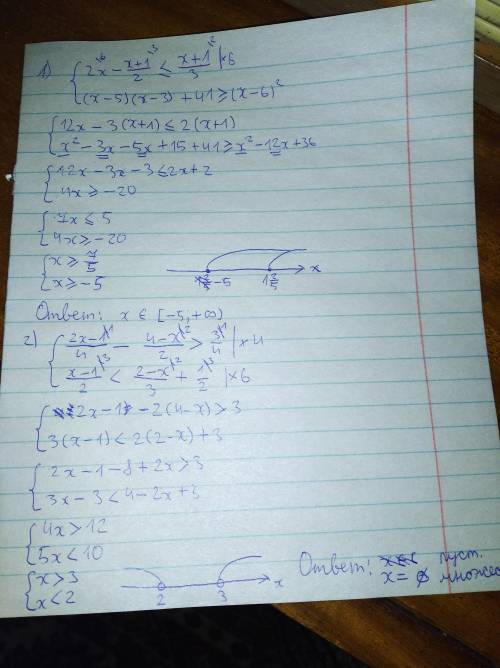 1) { 2x^6 - x+1^3/2 ≤ x+1^2/3 | ×6
(x-5)(x-3) + 41 ≥ (x-6)^2
{ 12x - 3(x+1) ≤ 2(x+1)
x^2 - 3x - 5x + 15 + 41 ≥ x^2 - 12x + 36
{ 12x - 3x - 3 ≤ 2x + 2
4x ≥ -20
{ 7x ≤ 5
4x ≥ -20
{ x ≥ 7/5
x ≥ -5
-5 1 2/5 x
Ответ: x ∈ [-5, +∞)
2) { 2x-1^1/4 - 4-x^2/2 > 3^1/4 | ×4
x-1^3/2 < 2-x^2/3 + 1^3/2 | ×6
{ 2x-1 - 2(4-x) > 3
3(x-1) < 2(2-x) + 3
{ 2x - 1 - 8 + 2x > 3
3x - 3 < 4 - 2x + 3
{ 4x > 12
5x < 10
{ x > 3
x < 2
2 3 x
Ответ: пуст.
x = ∅ множес